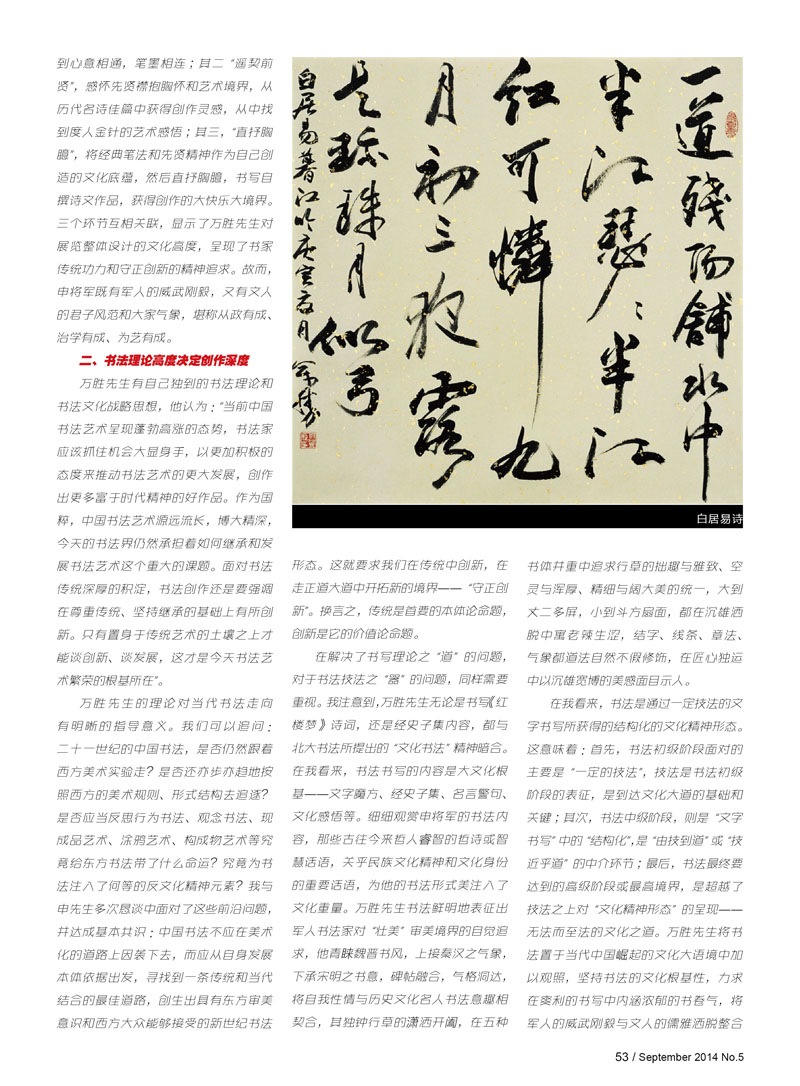 到心意相通，笔墨相连；其二“遥契前
贤”，感怀先贤襟抱胸怀和艺术境界，从
历代名诗佳篇中获得创作灵感，从中找
到度人金针的艺术感悟；其三，“直抒胸
臆”，将经典笔法和先贤精神作为自己创
造的文化底蕴，然后直抒胸臆，书写自
撰诗文作品，获得创作的大快乐大境界。
三个环节互相关联，显示了万胜先生对
展览整体设计的文化高度，呈现了书家
传统功力和守正创新的精神追求。故而，
申将军既有军人的威武刚毅，又有文人
的君子风范和大家气象，堪称从政有成、
治学有成、为艺有成。
二、书法理论高度决定创作深度
万胜先生有自己独到的书法理论和
书法文化战略思想，他认为：“当前中国
书法艺术呈现蓬勃高涨的态势，书法家
应该抓住机会大显身手，以更加积极的
态度来推动书法艺术的更大发展，创作
出更多富于时代精神的好作品。作为国
粹，中国书法艺术源远流长，博大精深，
今天的书法界仍然承担着如何继承和发
展书法艺术这个重大的课题。面对书法
传统深厚的积淀，书法创作还是要强调
在尊重传统、坚持继承的基础上有所创
新。只有置身于传统艺术的土壤之上才
能谈创新、谈发展，这才是今天书法艺
术繁荣的根基所在”。
万胜先生的理论对当代书法走向
有明晰的指导意义。我们可以追问：
二十一世纪的中国书法，是否仍然跟着
西方美术实验走？是否还亦步亦趋地按
照西方的美术规则、形式结构去追逐？
是否应当反思行为书法、观念书法、现
成品艺术、涂鸦艺术、构成物艺术等究
竟给东方书法带了什么命运？究竟为书
法注入了何等的反文化精神元素？我与
申先生多次恳谈中面对了这些前沿问题，
并达成基本共识：中国书法不应在美术
化的道路上因袭下去，而应从自身发展
本体依据出发，寻找到一条传统和当代
结合的最佳道路，创生出具有东方审美
意识和西方大众能够接受的新世纪书法
一道殘陽舖水中
半江瑟〻半江
紅可憐九
月初三夜露
是珎珠月似弓
白居易暮江吟庚寅夏月 萬勝
白居易诗
形态。这就要求我们在传统中创新，在
走正道大道中开拓新的境界——“守正创
新”。换言之，传统是首要的本体论命题，
创新是它的价值论命题。
在解决了书写理论之“道”的问题，
对于书法技法之“器”的问题，同样需要
重视。我注意到，万胜先生无论是书写《红
楼梦》诗词，还是经史子集内容，都与
北大书法所提出的“文化书法”精神暗合。
在我看来，书法书写的内容是大文化根
基——文字魔方、经史子集、名言警句、
文化感悟等。细细观赏申将军的书法内
容，那些古往今来哲人睿智的哲诗或智
慧话语，关乎民族文化精神和文化身份
的重要话语，为他的书法形式美注入了
文化重量。万胜先生书法鲜明地表征出
军人书法家对“壮美”审美境界的自觉追
求，他青睐魏晋书风，上接秦汉之气象，
下承宋明之书意，碑帖融合，气格洞达，
将自我性情与历史文化名人书法意趣相
契合，其独钟行草的潇洒开阖，在五种
书体并重中追求行草的拙趣与雅致、空
灵与浑厚、精细与阔大美的统一，大到
丈二多屏，小到斗方扇面，都在沉雄洒
脱中寓老辣生涩，结字、线条、章法、
气象都道法自然不假修饰，在匠心独运
中以沉雄宽博的美感面目示人。
在我看来，书法是通过一定技法的文
字书写所获得的结构化的文化精神形态。
这意味着：首先，书法初级阶段面对的
主要是“一定的技法”，技法是书法初级
阶段的表征，是到达文化大道的基础和
关键；其次，书法中级阶段，则是“文字
书写”中的“结构化”，是“由技到道”或“技
近乎道”的中介环节；最后，书法最终要
达到的高级阶段或最高境界，是超越了
技法之上对“文化精神形态”的呈现——
无法而至法的文化之道。万胜先生将书
法置于当代中国崛起的文化大语境中加
以观照，坚持书法的文化根基性，力求
在爽利的书写中内涵浓郁的书卷气，将
军人的威武刚毅与文人的儒雅洒脱整合
53 / September 2014 No.5